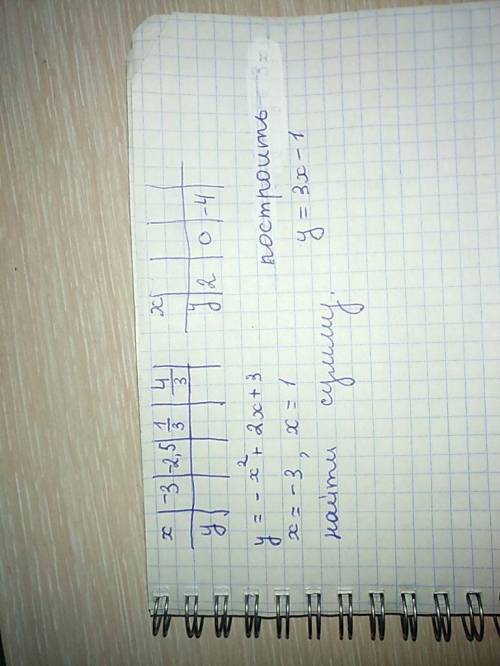 x | -3 | -2,5 | 1/3 | 4/3
y
x
y | 2 | 0 | -4
y = -x² + 2x + 3
x = -3, x = 1
найти сумму.
построить
y = 3x - 1